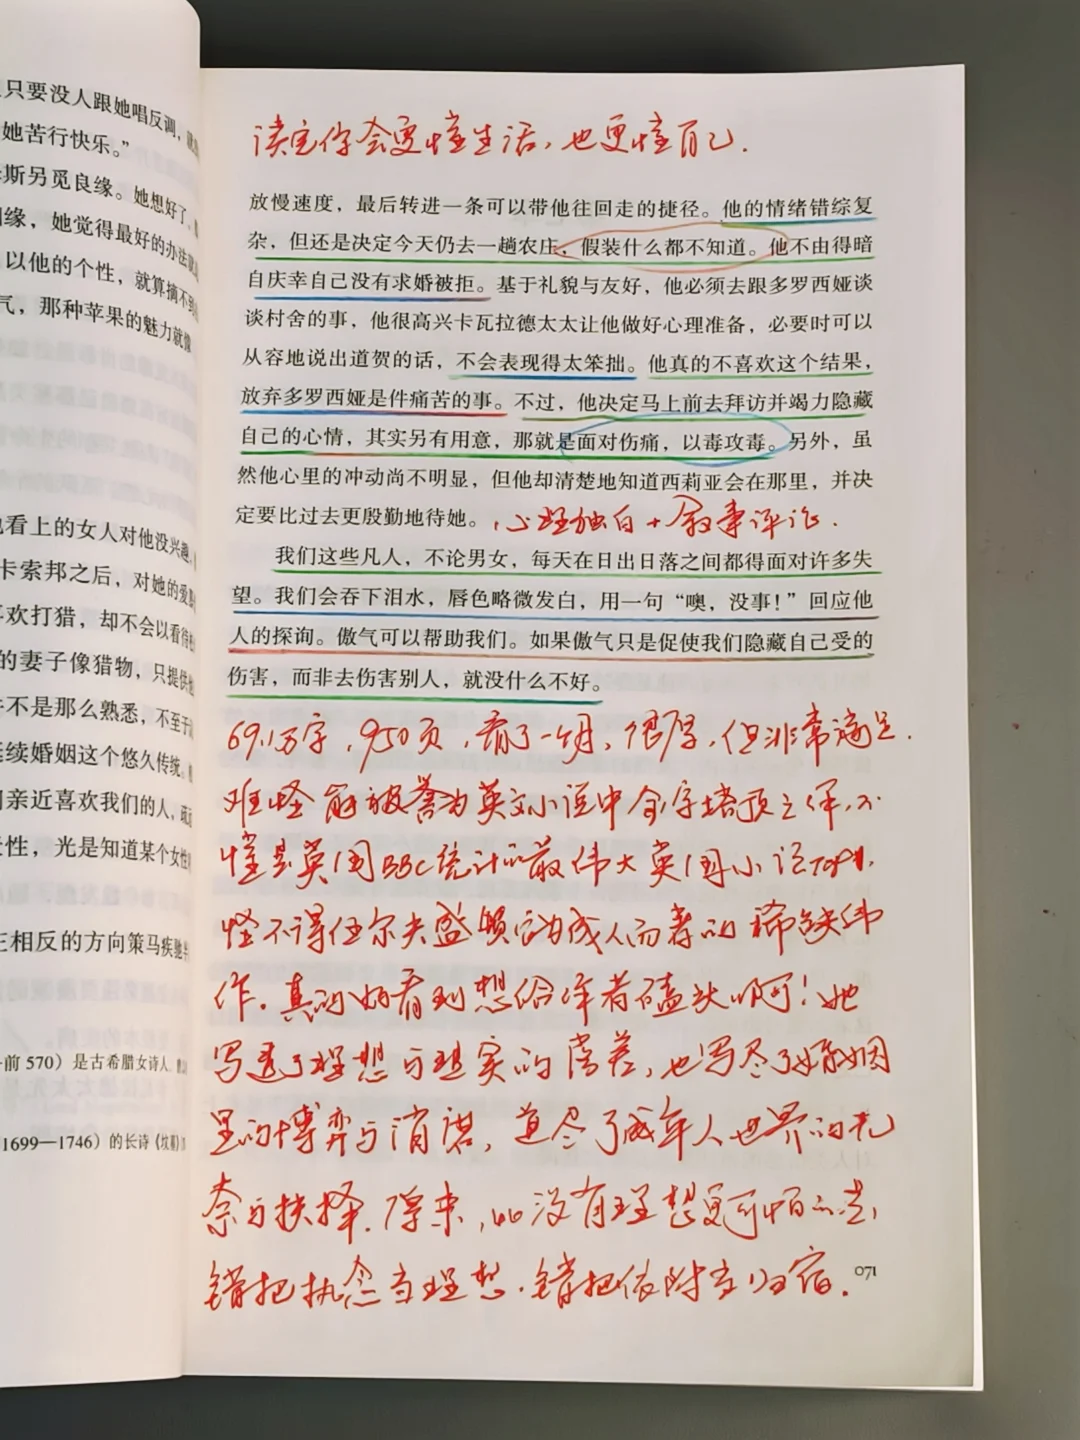 只要没人跟她唱反调，
她苦行快乐。”
斯另觅良缘。她想好了，
因缘，她觉得最好的办法
以他的个性，就算摘不到
气，那种苹果的魅力就像
看上的女人对他没兴趣，
卡索邦之后，对她的爱
喜欢打猎，却不会以看待
的妻子像猎物，只提供
不是那么熟悉，不至于
延续婚姻这个悠久传统。
亲近喜欢我们的人，疏
性，光是知道某个女性
正相反的方向策马疾驰
前 570）是古希腊女诗人，
1699—1746）的长诗《坟墓》
读完你会更懂生活，也更懂自己．
放慢速度，最后转进一条可以带他往回走的捷径。他的情绪错综复
杂，但还是决定今天仍去一趟农庄，假装什么都不知道。他不由得暗
自庆幸自己没有求婚被拒。基于礼貌与友好，他必须去跟多罗西娅谈
谈村舍的事，他很高兴卡瓦拉德太太让他做好心理准备，必要时可以
从容地说出道贺的话，不会表现得太笨拙。他真的不喜欢这个结果，
放弃多罗西娅是件痛苦的事。不过，他决定马上前去拜访并竭力隐藏
自己的心情，其实另有用意，那就是面对伤痛，以毒攻毒。另外，虽
然他心里的冲动尚不明显，但他却清楚地知道西莉亚会在那里，并决
定要比过去更殷勤地待她。
心理独白+叙事评论．
我们这些凡人，不论男女，每天在日出日落之间都得面对许多失
望。我们会吞下泪水，唇色略微发白，用一句“噢，没事！”回应他
人的探询。傲气可以帮助我们。如果傲气只是促使我们隐藏自己受的
伤害，而非去伤害别人，就没什么不好。
69.1万字，950页，看了一个月，很厚，但非常满足．
难怪能被誉为英文小说中金字塔顶之作，不
愧是英国BBC统计的最伟大英国小说TOP1，
怪不得伍尔夫盛赞它为成人而著的稀缺伟
作．真的好看到想给作者磕头啊！她
写透了理想与现实的落差，也写尽了婚姻
里的博弈与消磨，道尽了成年人世界的无
奈与抉择．原来，比没有理想更可怕的是，
错把执念当理想．错把依附当归宿．
071